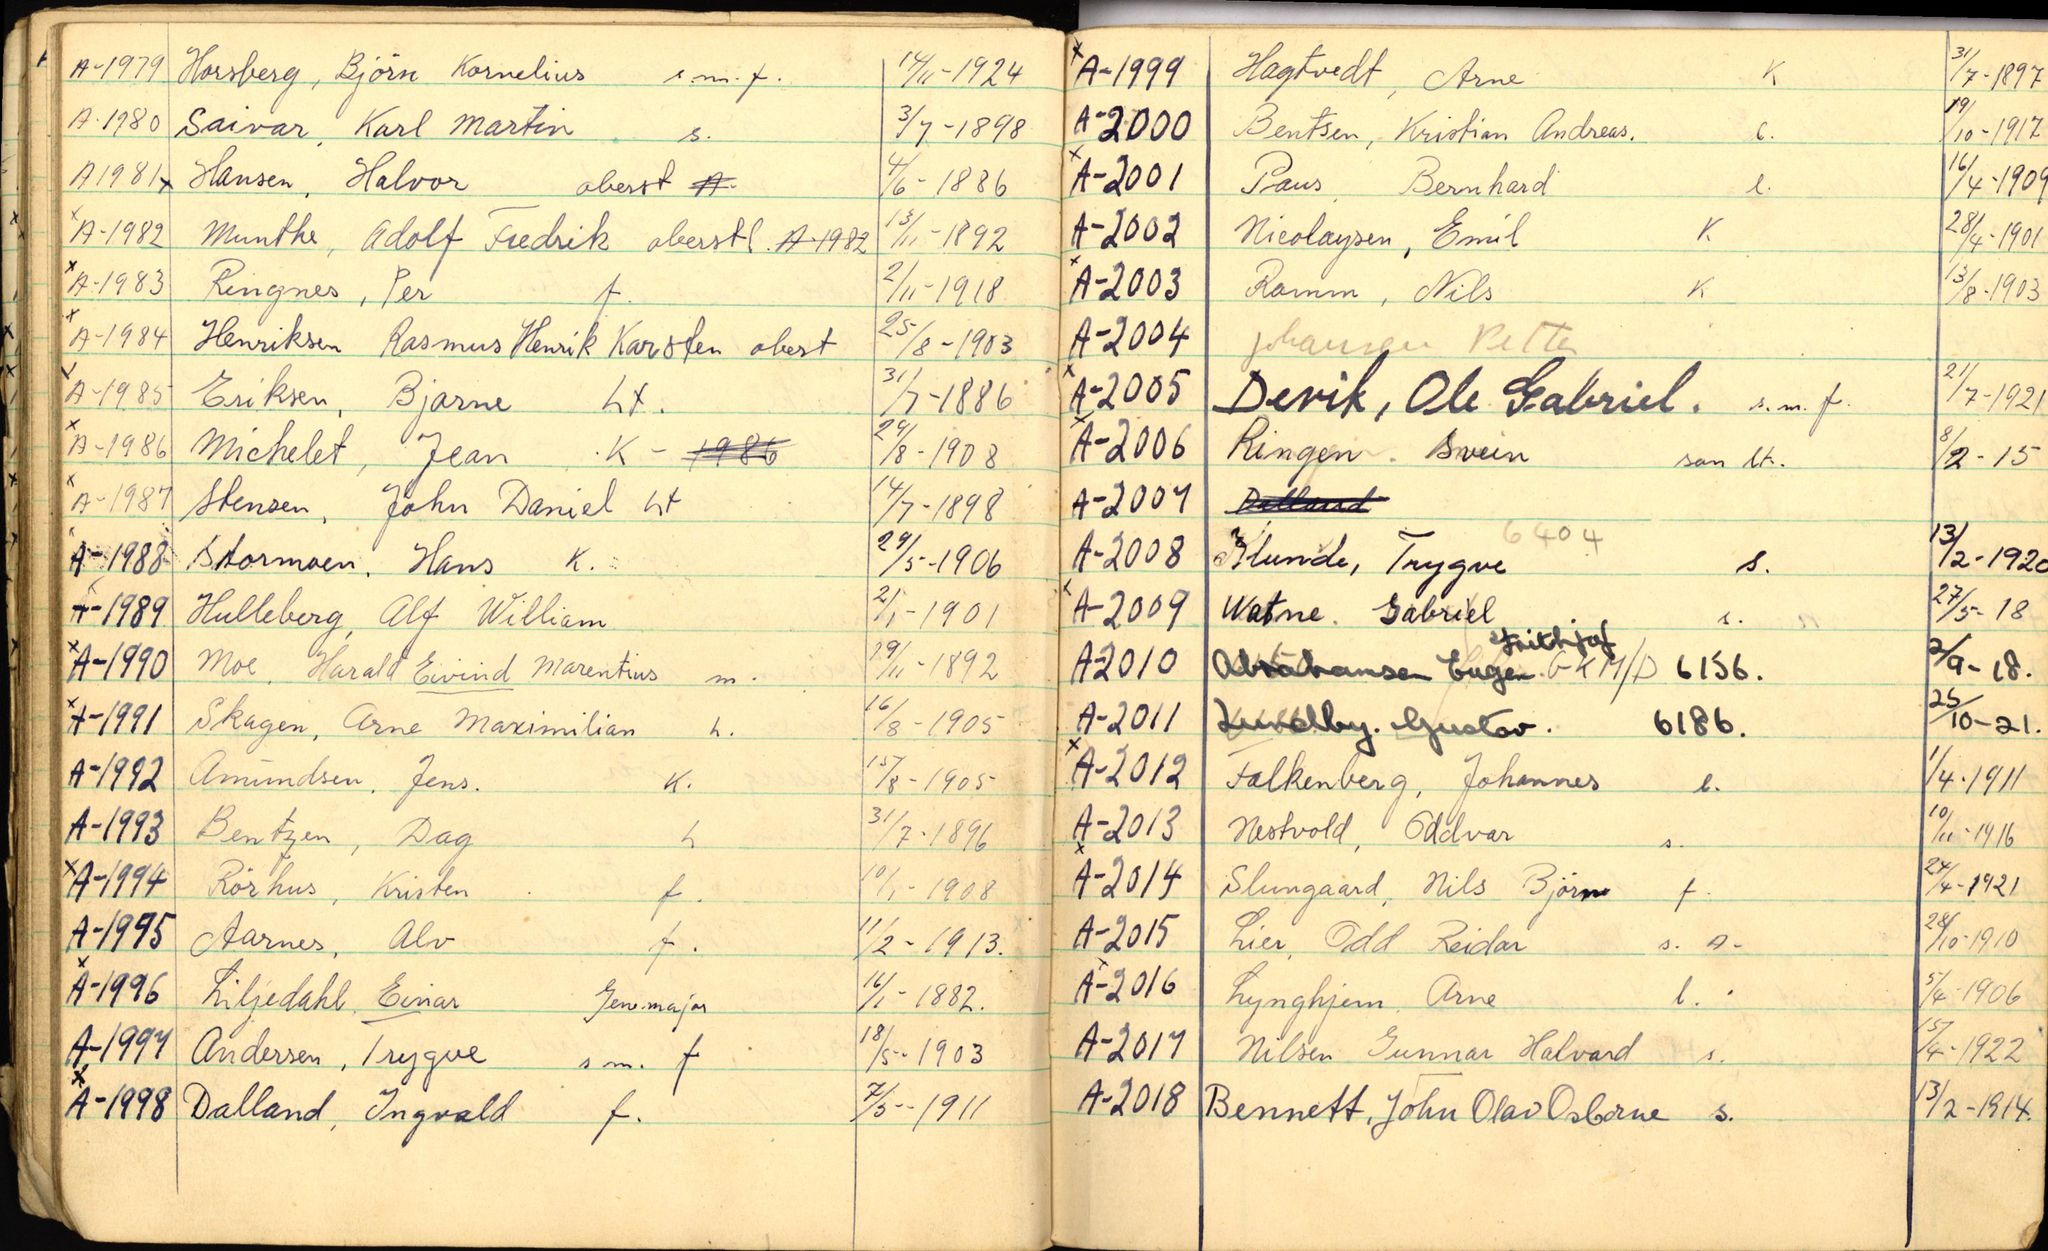 A-1979 Horsberg, Björn Kornelius s.m.f. 14/11-1924
A-1980 Saivar, Karl Martin s. 3/7-1898
A1981x Hansen, Halvor oberst A- 4/6-1886
x A-1982 Munthe, Adolf Fredrik oberstl. A-1982 13/11-1892
x A-1983 Ringnes, Per f. 2/11-1918
x A-1984 Henriksen Rasmus Henrik Karsten obest 25/8-1903
x A-1985 Eriksen, Bjarne Lt. 31/7-1886
x A-1986 Michelet, Jean K- 1986 29/8-1908
x A-1987 Stensen, John Daniel Lt 14/7-1898
A-1988 Stormoen, Hans K. 29/5-1906
A-1989 Hulleberg, Alf William 2/1-1901
x A-1990 Moe, Harald Eivind Marentius m. 29/11-1892
x A-1991 Skagen, Arne Maximilian L. 16/8-1905
A-1992 Amundsen, Jens. K. 15/8-1905
A-1993 Bentzen, Dag L 31/7-1896
x A-1994 Rörhus, Kristen f. 10/1-1908
A-1995 Aarnes, Alv f. 11/2-1913.
x A-1996 Liljedahl, Einar Gen.major 16/1-1882.
A-1997 Andersen, Trygve s m. f 18/5-1903
x A-1998 Dalland, Ingvald f. 7/5-1911
x A-1999 Hagtvedt, Arne K 31/7-1897
A-2000 Bentsen, Kristian Andreas. l. 19/10-1917
x A-2001 Paus, Bernhard l. 16/4-1909
A-2002 Nicolaysen, Emil K 28/4-1901
x A-2003 Ramm, Nils K 13/8-1903
A-2004 Johansen Petter
x A-2005 Devik, Ole Gabriel. s.m.f. 21/7-1921
x A-2006 Ringen. Svein san lt. 8/2-15
A-2007 Dalland
6404
A-2008 Klunde, Trygve s. 13/2-1920
x A-2009 Watne. Gabriel s. 27/5-18
Frithjof
A-2010 Abrahamsen Eugen. GKM/D 6156. 2/9-18.
A-2011 Lundby. Gustav. 6186. 25/10-21.
x A-2012 Falkenberg, Johannes l. 1/4-1911
A-2013 Nestvold, Oddvar s. 10/11-1916
x A-2014 Slungaard, Nils Björn f. 24/4-1921
A-2015 Lier, Odd Reidar s. A- 28/10-1910
x A-2016 Lynghjem, Arne l. 5/4-1906
A-2017 Nilsen Gunnar Halvard s. 15/4-1922
A-2018 Bennett, John Olav Osborne s. 13/2-1914.